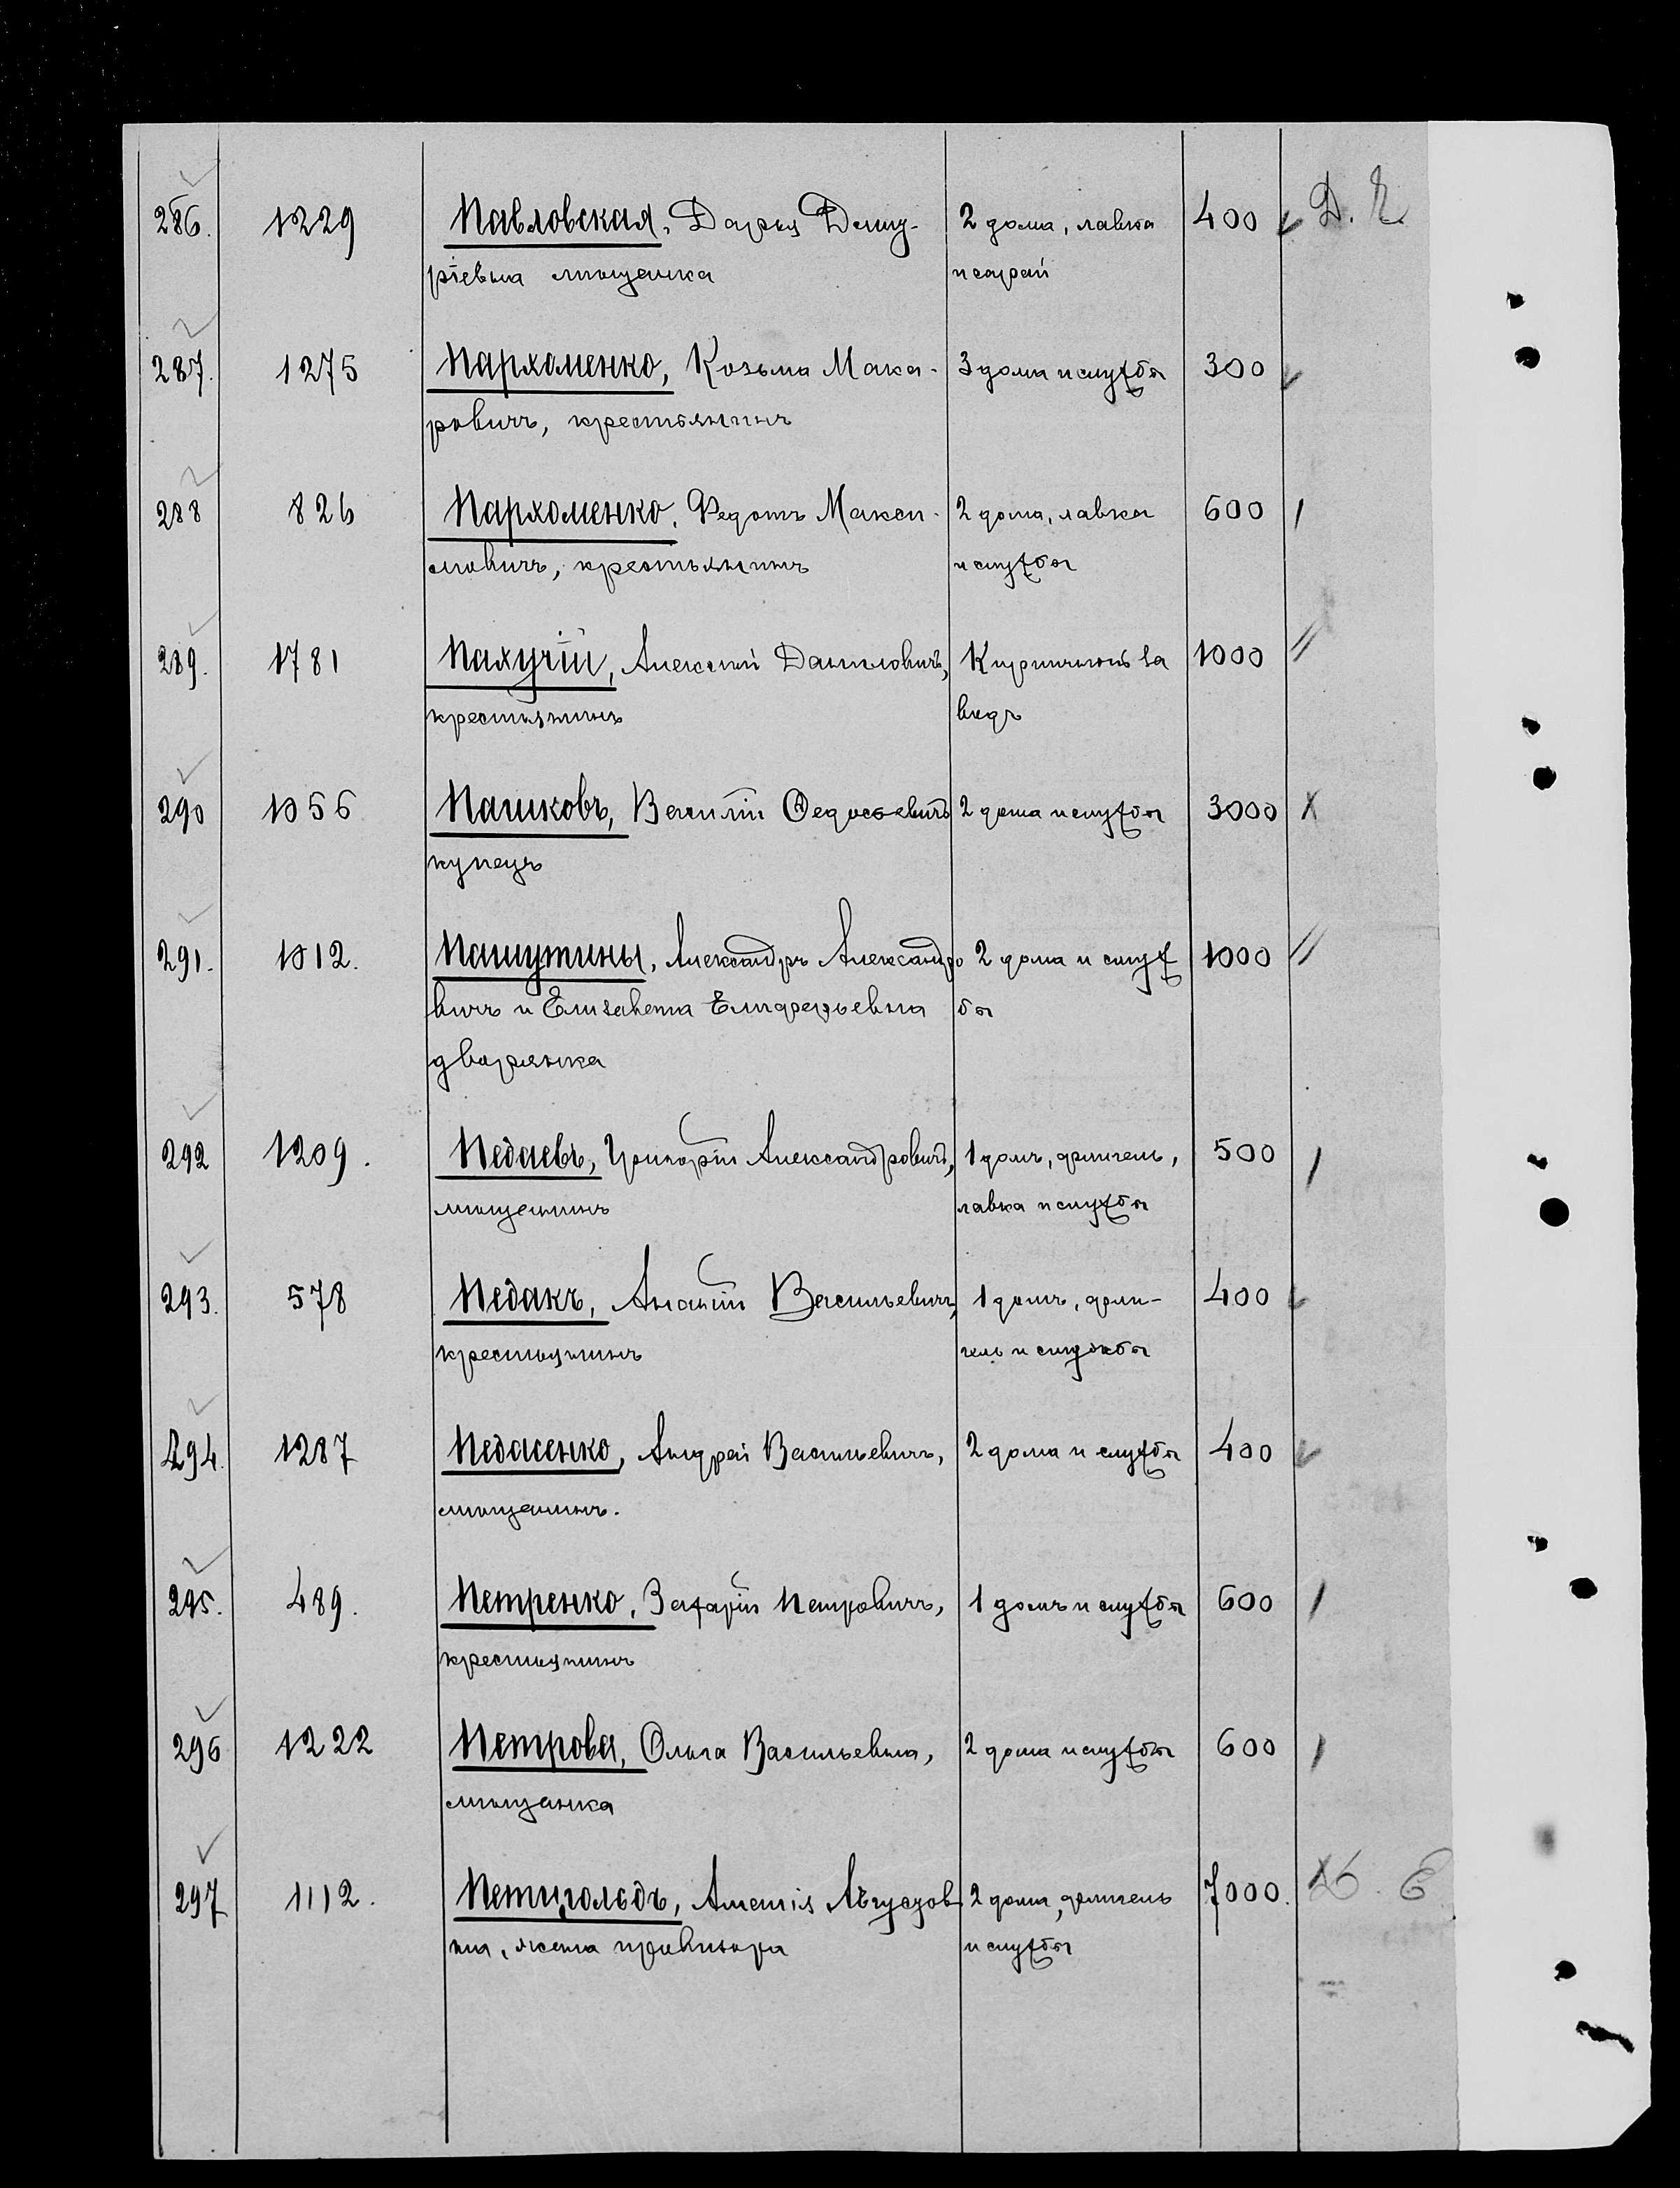 286. 1229 Павловская, Дарья Дмит- 2 дома, лавка 400
ріевна мѣщанка и сарай
287. 1275 Пархоменко, Козьма Мака- 3 дома и службы 300
ровичъ, крестьянинъ
288 826 Пархоменко, Федотъ Макси- 2 дома, лавка 600
мовичъ, крестьянинъ и службы
289. 1781 Пахучій, Алексѣй Даниловичъ, Кирпичный за 1000
крестьянинъ водъ
290 1056 Пашковъ, Василій Федосѣевичъ 2 дома и службы 3000
купецъ
291. 1012. Пашутины, Александръ Александро 2 дома и служ 1000
вичъ и Елизавета Елиферьевна бы
дворянка
292 1209. Педаевъ, Григорій Александровичъ, 1 домъ, флигель, 500
мѣщанинъ лавка и службы
293. 578 Педакъ, Ананій Васильевичъ, 1 домъ, фли- 400
крестьянинъ гель и службы
294. 1287 Педасенко, Андрей Васильевичъ, 2 дома и службы 400
мѣщанинъ.
295. 489. Петренко, Захарій Петровичъ, 1 домъ и службы 600
крестьянинъ
296 1222 Петрова, Ольга Васильевна, 2 дома и службы 600
мѣщанка
297 1112. 2 дома, флигель 7000.
на, жена провизора и службы